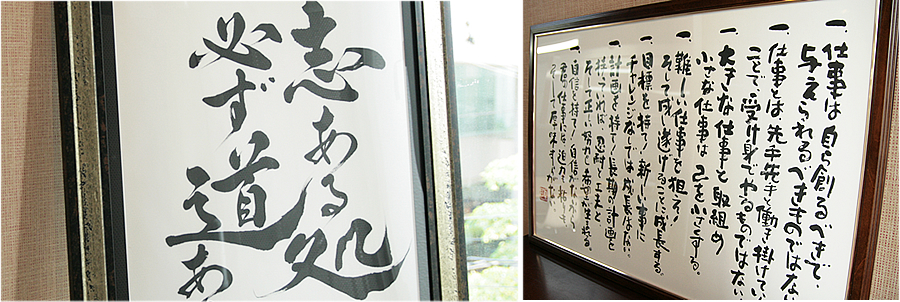 志ある処
必ず道あ
一、仕事は自ら創るべきで、
与えられるべきものではない
一、仕事とは先手先手と働き掛けてい
ことで、受け身でやるものではない
一、大きな仕事と取組め
小さな仕事は己を小さくする。
一、難しい仕事を狙え
そして成し遂げることに成長する。
一、目標を持て!新しい事に
チャレンジなくては成長はない。
一、計画を持て!長期の計画を
持てば 忍耐と工夫と
そして正しい努力と希望が生まれる。
一、自信を持て!自信がないから
君の仕事には迫力も粘りも
そして厚味すらない